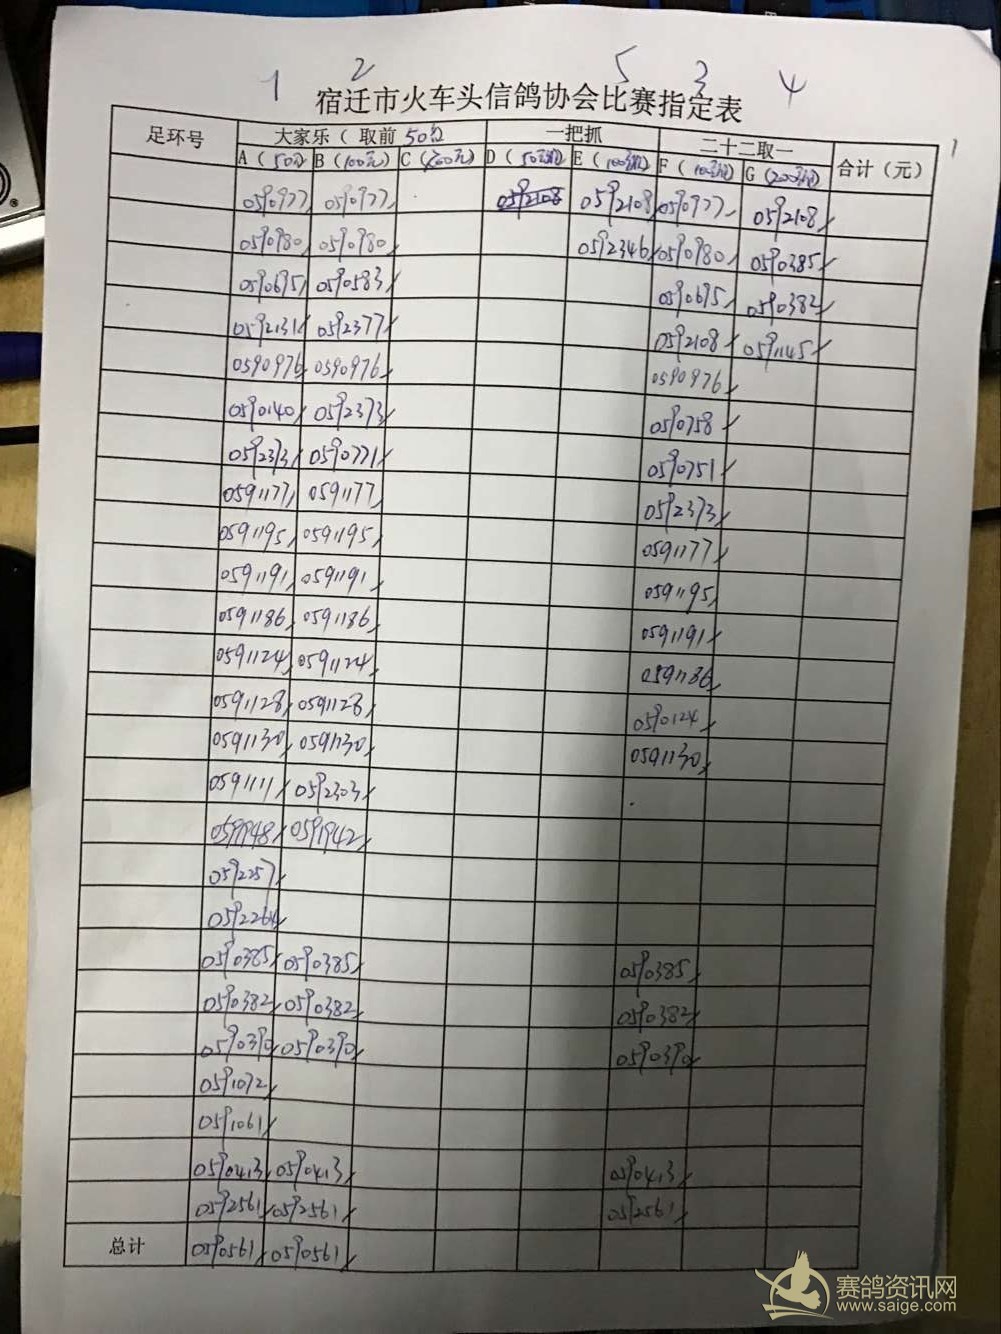 1 2 5 3 4
宿迁市火车头信鸽协会比赛指定表
1
足环号 大家乐（ 取前 50名 一把抓 二十二取一 合计（元）
A（50元） B（100元） C（200元） D（50元） E（100元） F（100元） G（200元）
0590977 0590977 0592108 0592108 0590977 0592108
0590980 0590980 0592346 0590980 0590385
0590695 0590583 0590695 0590382
0592131 0592377 0592108 0591145
0590976 0590976 0590976
0590140 0592373 0590758
0592373 0590771 0590751
0591177 0591177 0592373
0591195 0591195 0591177
0591191 0591191 0591195
0591186 0591186 0591191
0591124 0591124 0591186
0591128 0591128 0590124
0591130 0591130 0591130
0591111 0592303
0591948 0591942
0592257
0592264
0590385 0590385 0590385
0590382 0590382 0590382
0590390 0590390 0590390
0591072
0591061
0590413 0590413 0590413
0592561 0592561 0592561
总计 0590561 0590561
赛鸽资讯网
www.saige.com